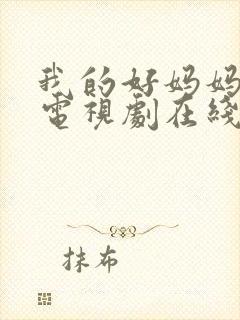 我的好妈妈
電視劇在綫
抹布